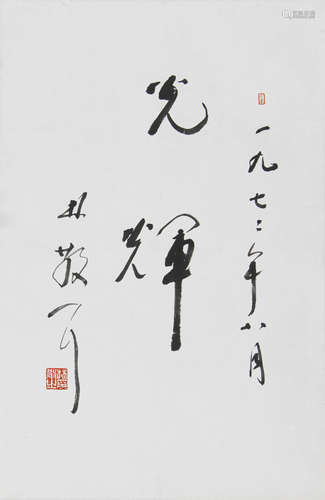 一九七二年八月
光輝
林散耳